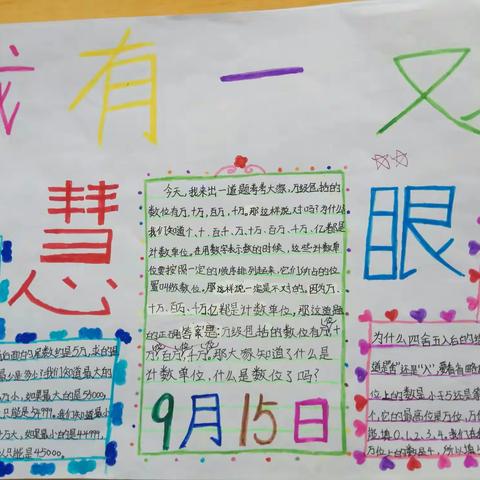 我有一双
慧眼
今天,我来出一道题考考大家,万级包括的
数位有万,十万,百万,千万。那这样说对吗?为什么
我们知道个、十、百、千、万、十万、百万、千万、亿都是
计数单位。在用数字表示数的时候,这些计数单
位要按照一定的顺序排列起来,它们所占的位
置叫做数位。那这样说一定是不对的。因为万、
十万、百万、千万亿都是计数单位,那这道题
的正确答案是:万级包括的数位有万位,十
万位,百万位,千万位,那大家知道了什么是
计数单位,什么是数位了吗?
9月15日
的尾数约是5万,求的
最少是多少?我们知道最大的
万小,如果最大的是55000,
只能是54999,我们知道最小
4万大,如果最小的是44999,
以只能是45000。
为什么四舍五入后的
道是“舍”还是“入”,要看省略
位上的数是小于5还是
个,它的最高位是万位,万
能填0、1、2、3、4。我们在
万位上的数是4,所以填